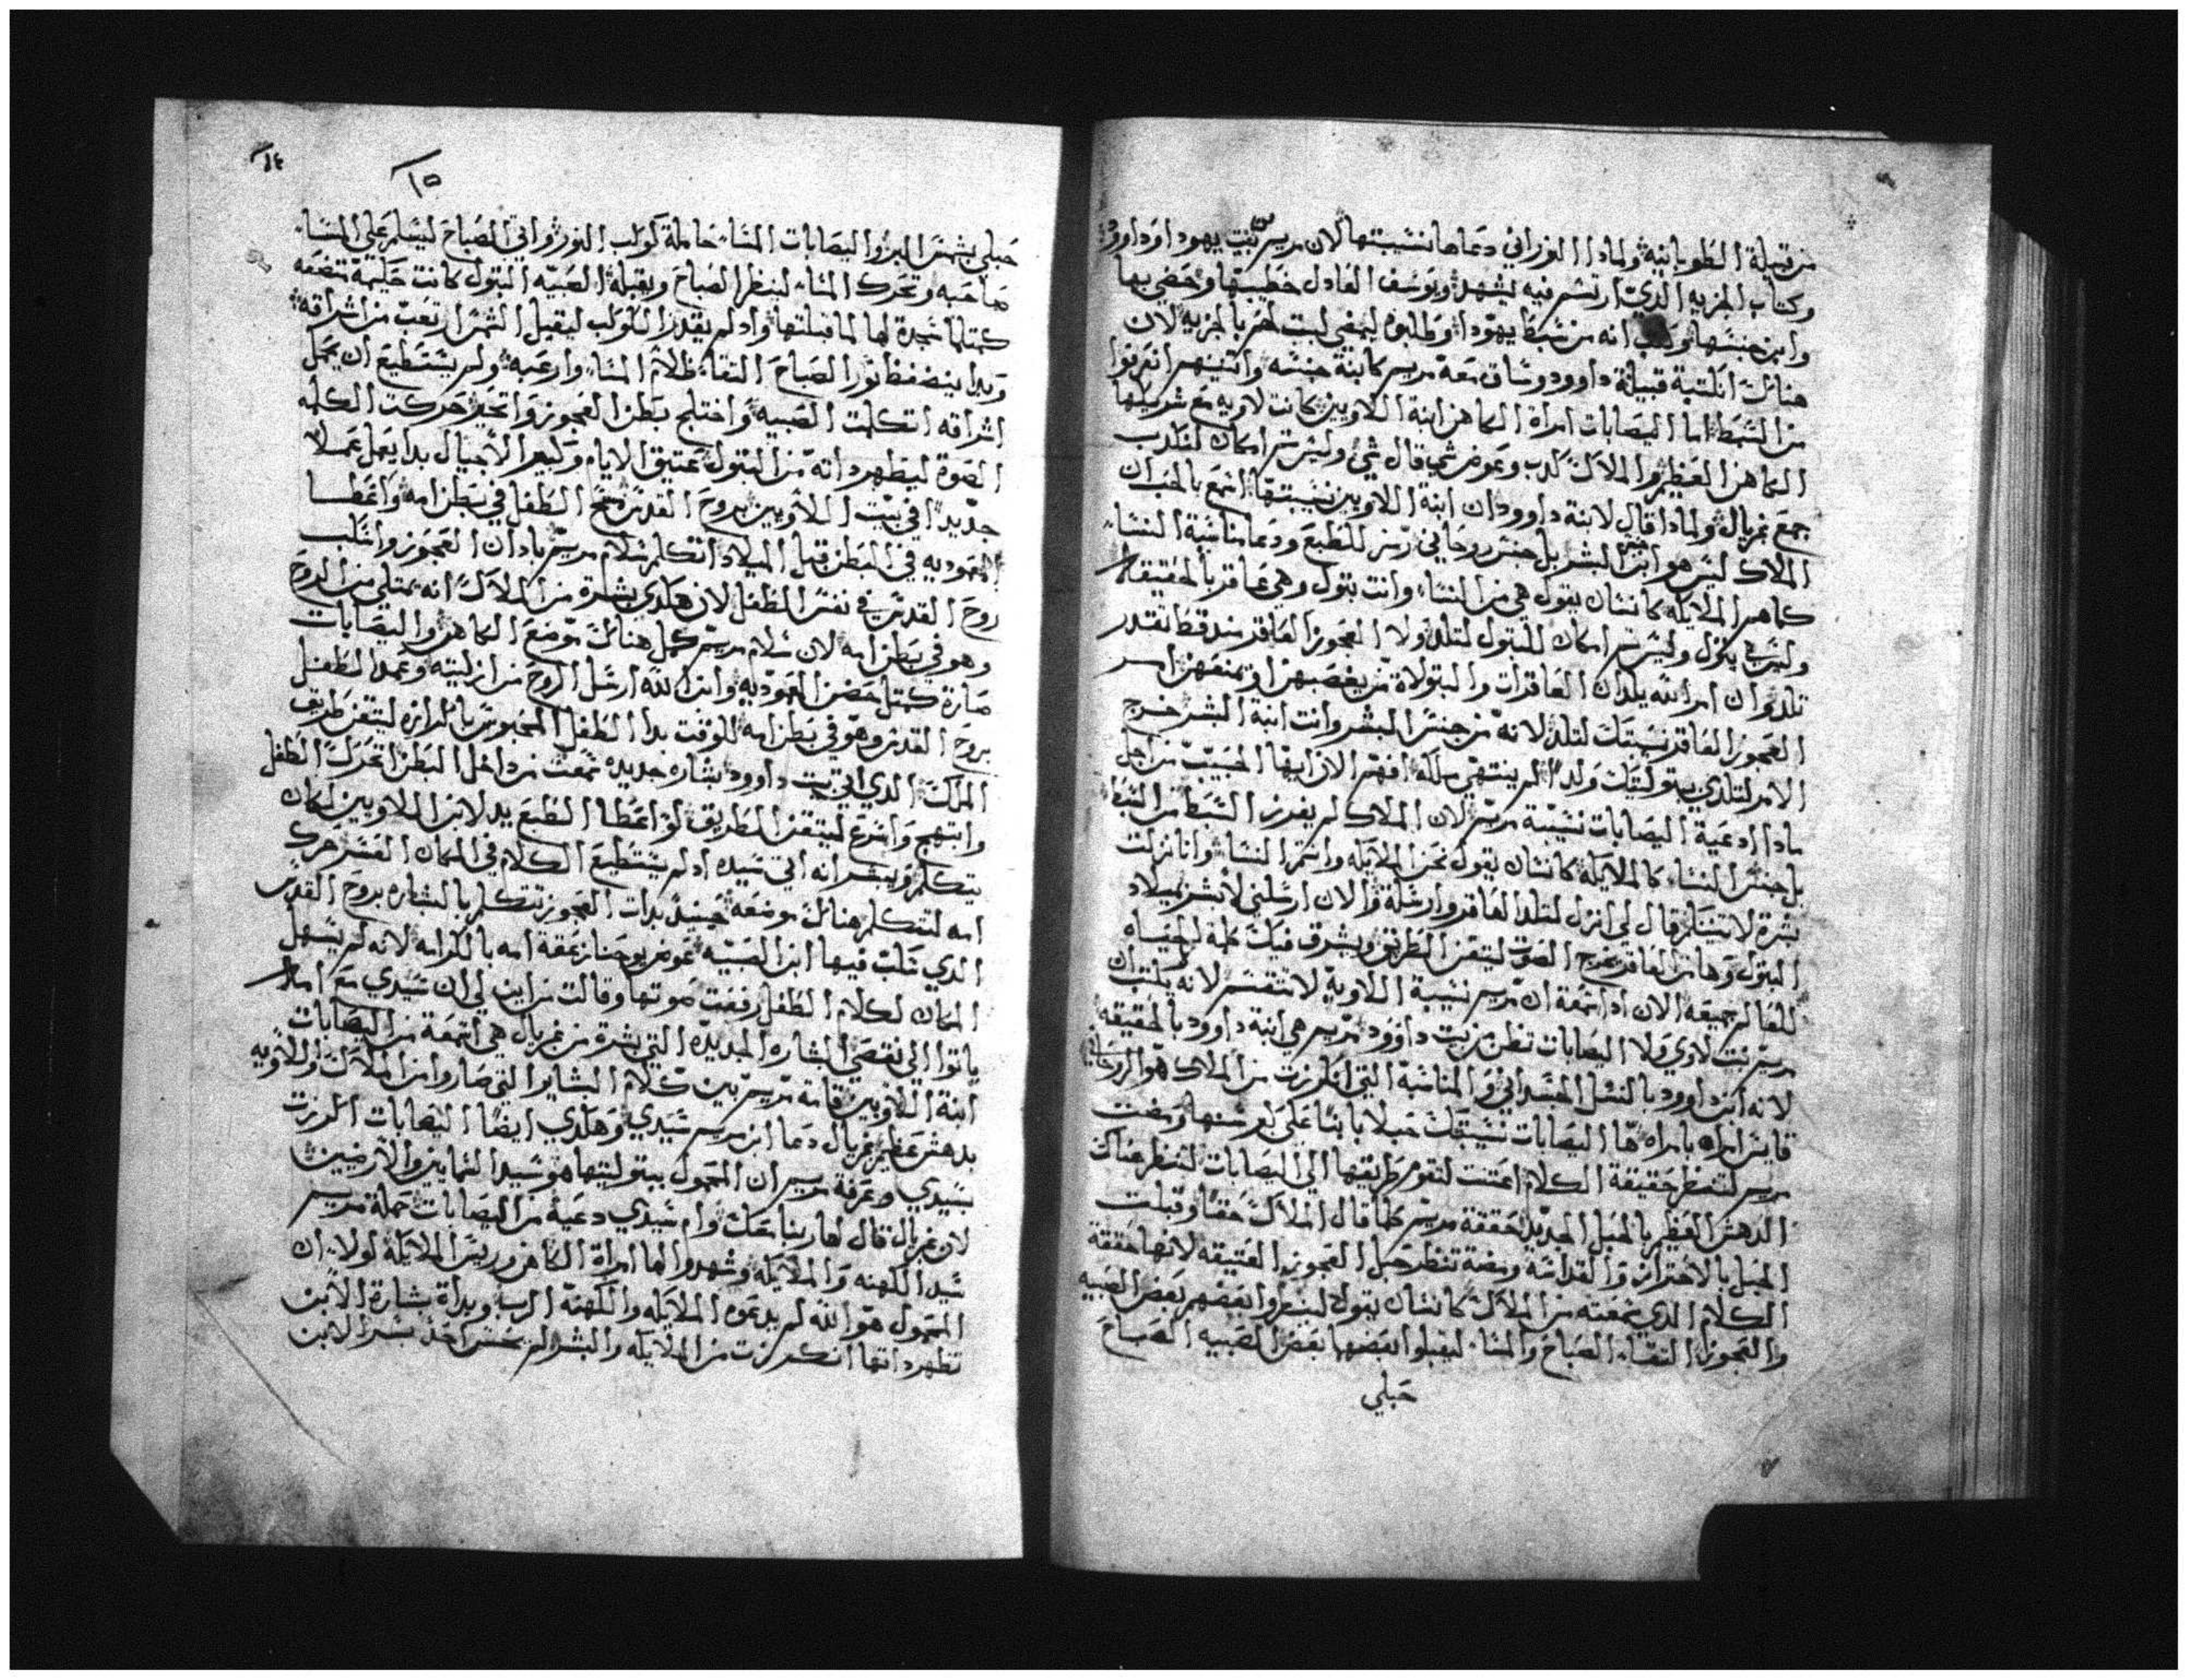 من قبيلة الطوبانيه ولمادا النوراني دعاها نسيبتها لان مريم بيت يهودا وداوود
وكتاب الجزيه الدي ارتسم فيه يشهد ويوسف العادل خطيبها وخصي بها
وابن جنسها وكتب انه من سبط يهودا وطلبوه ليمضي لبيت لحم بالجزيه لان
هنالك انكتبة قبيلة داوود وساق معه مريم كابنة جنسه واتنينهم انعرفوا
من السبط اما اليصابات امراة الكاهن ابنة اللاويين كانت لاويه مع شريكها
الكاهن العظيم والملاك كدب وعوض شي قال شي وليس تم امكان لتكدب
جمع غبريال ولمادا قال لابنة داوود ان ابنة اللاويين نسيبتها اسمع بالحب ان
الملاك ليس هو ابن البشر بل جنس روحاني رمز للطبع ودعا مناسبة النساء
كاهم الملايكه كانسان يقول هي من النساء وانت بتول وهي عاقر بالحقيقه
وليس في بتول وليس تم امكان للبتول لتلد ولا العجوز العاقر مند قط تقدر
تلد وان امر الله يلدان العاقرات والبتولاة من يغصبهن او يمنعهن امر
العجوز العاقر نسيبتك لتلد لانه من جنس البشر وانت ابنة البشر خرج
الامر لتلدي ببتوليتك ولدا لم ينتهي ملكه افهم الان ايها الحبيب من اجل
مادا ادعية اليصابات نسيبة مريم لان الملاك لم يفرز السبط من السبط
بل جنس النساء كالملايكه كانسان يقول نحن الملايكه وانتم النساء وانا نزلت
بشرة لا تتينكر قال لي انزل لتلد العاقر وارسله والان ارسلني لابشر بميلاد
البتول وها من العاقر يخرج الصوت ليتقن الطريق ويشرق فيك كلمة الحياه
للعالم جميعه الان ادا سمعة ان مريم نسيبة اللاويه لا تتقسم لانه يكتب ان
مريم بنت لاوي ولا اليصابات تظن من بيت داوود مريم هي ابنة داوود بالحقيقه
لانه ابن داوود بالنسل الجسداني والمناسبة التي انكرزت من الملاك هو الروحاني
قايس امراه بامراه ها اليصابات نسيبتك حبلا بابنا على كبر سنها ومضت
مريم لتنظر حقيقة الكلام اعتنت لتقوم طريقها الي اليصابات لتنظر هناك
الدهش العظيم بالحبل الجديد حققة مريم كلما قال الملاك حقا وقبلت
الحبل بالاحتراز والقداسه ومضة تنظر حبل العجوز العتيقه لانها حققة
الكلام الدي سمعته من الملاك كانسان يقول لينعموا بعضهم بعض الصبيه
والعجوز التقاء الصباح والمساء ليقبلوا بعضها بعض الصبيه الصباح
حبلي
١٤
١٥
حبلي بشمس البر واليصابات المساء حاملة كوكب النور واتي الصباح ليسلم علي المساء
صاحبه وتحرك المساء لينظر الصباح ويقبله الصبيه البتول كانت حكيمة متضعه
كمتلما سجدة لها لما قبلتها واد لم يقدر الكوكب ليقبل الشمس ارتعب من اشراقه
وبدا ينضغظ نور الصباح التقاء ظلام المساء وارعبه ولم يستطيع ان يحمل
اشراقه اتكلمت الصبيه واختلج بطن العجوز واتحير حركت الكلمه
الصوة ليظهر دانه من البتول عتيق الايام وكبير الاجيال بدا يعمل عملا
جديدا في بيت اللاويين بروح القدس مسح الطفل في بطن امه واعطا
المعموديه في البطن قبل الميلاد اتكلم سلام مريم بادان العجوز وانسكب
روح القدس في نفس الطفل لان هكدي بشرة من الملاك انه يمتلي من الروح
وهو في بطن امه لان سلام مريم كمل هنالك موضع الكاهن واليصابات
صارة كمتل حضن المعموديه وابن الله ارسل الروح من ازليته وعمد الطفل
بروح القدس وهو في بطن امه للوقت بدا الطفل المحبوس بالكرازه ليتقن طريق
الملك الدي اتي بيت داوود بشاره جديده سمعت من داخل البطن اتحرك الطفل
وابتهج واسرع ليتقن الطريق لو اعطا الطبع يد لابن اللاويين لكان
يتكلم ويبشر انه اتي سيده اد لم يستطيع الكلام في المكان العسر حرك
امه لتتكلم هنالك موضعه حينيد بدات العجوز تتكلم بالبشاره بروح القدس
الدي سكب فيها ابن الصبيه عوض يوحنا زعقة امه بالكرامه لانه لم يسهل
المكان لكلام الطفل رفعت صوتها وقالت من اين لي ان سيدي مع امه
ياتوا الي نقصي البشاره الجديده التي بشرة من غبريال هي اتسمعة من اليصابات
ابنة اللاويين قامة مريم بين كلام البشاير التي صاروا من الملاك واللاويه
بدهش عظيم غبريال دعا ابن مريم سيدي وهكدي ايضا اليصابات اكرزت
بسيدي وعرفة مريم ان المحمول ببتوليتها هو سيد السمايين والارضيين
لان غبريال قال لها ربنا معك وام سيدي دعية من اليصابات حملة مريم
سيد الكهنه والملايكه وشهدوا لها امراة الكاهن وريس الملايكه لولا ان
المحمول هو الله لم يدعوه الملايكه والكهنة الرب وبداة بشارة الابن
تظهر دانها انكرزت من الملايكه والبشر لم يحس احد بسر الابن